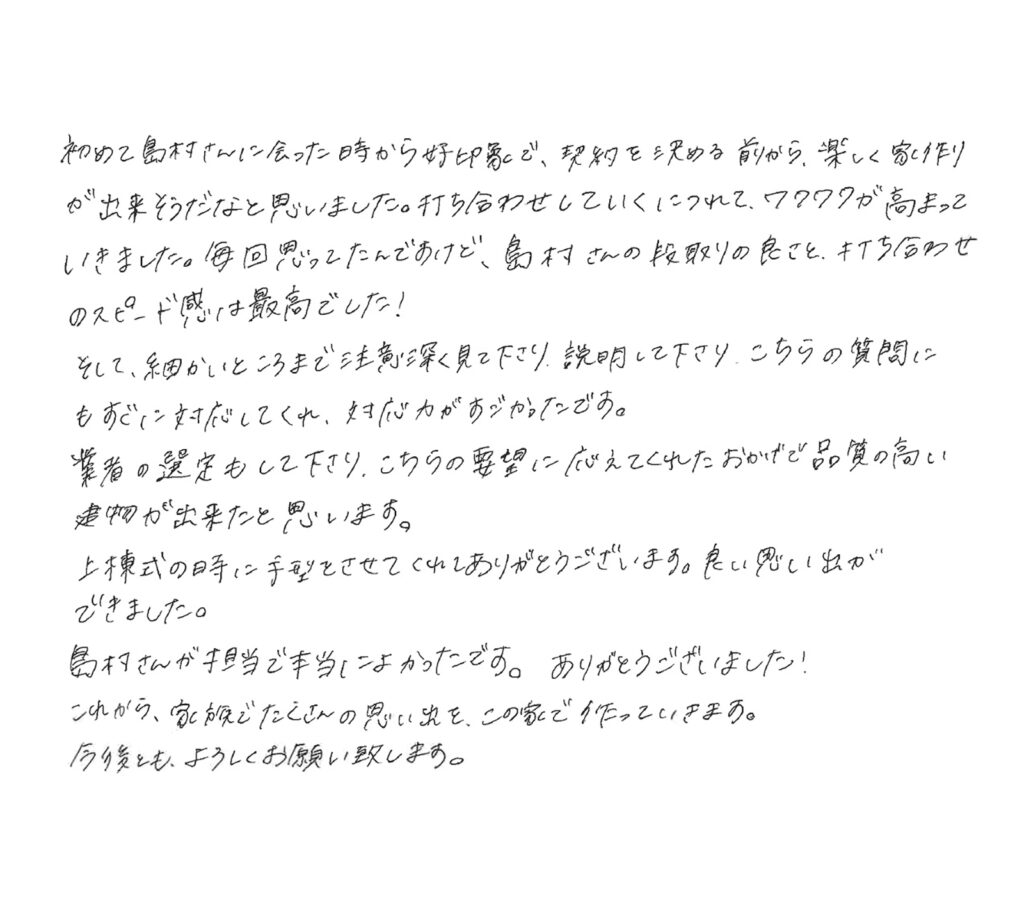 初めて島村さんに会った時から好印象で、契約を決める前から、楽しく家作り
が出来そうだなと思いました。打ち合わせしていくにつれて、ワクワクが高まって
いきました。毎回思ってたんですけど、島村さんの段取りの良さと、打ち合わせ
のスピード感は最高でした!
そして、細かいところまで注意深く見て下さり、説明して下さり、こちらの質問に
もすぐに対応してくれ、対応力がすごかったです。
業者の選定もして下さり、こちらの要望に応えてくれたおかげで品質の高い
建物が出来たと思います。
上棟式の時に手型をさせてくれてありがとうございます。良い思い出が
できました。
島村さんが担当で本当によかったです。 ありがとうございました!
これから、家族でたくさんの思い出を、この家で作っていきます。
今後とも、よろしくお願い致します。